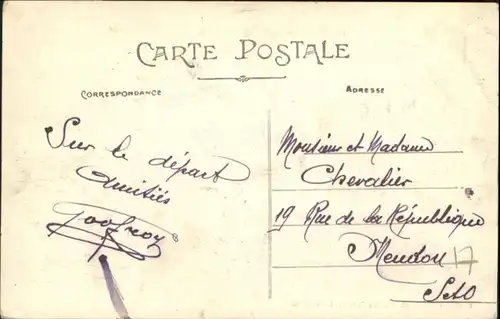 CARTE POSTALE
CORRESPONDANCE
ADRESSE
Sur le départ
Amitiés
Monsieur et Madame
Chevalier
19 Rue de la République
Meudon
S et O
17